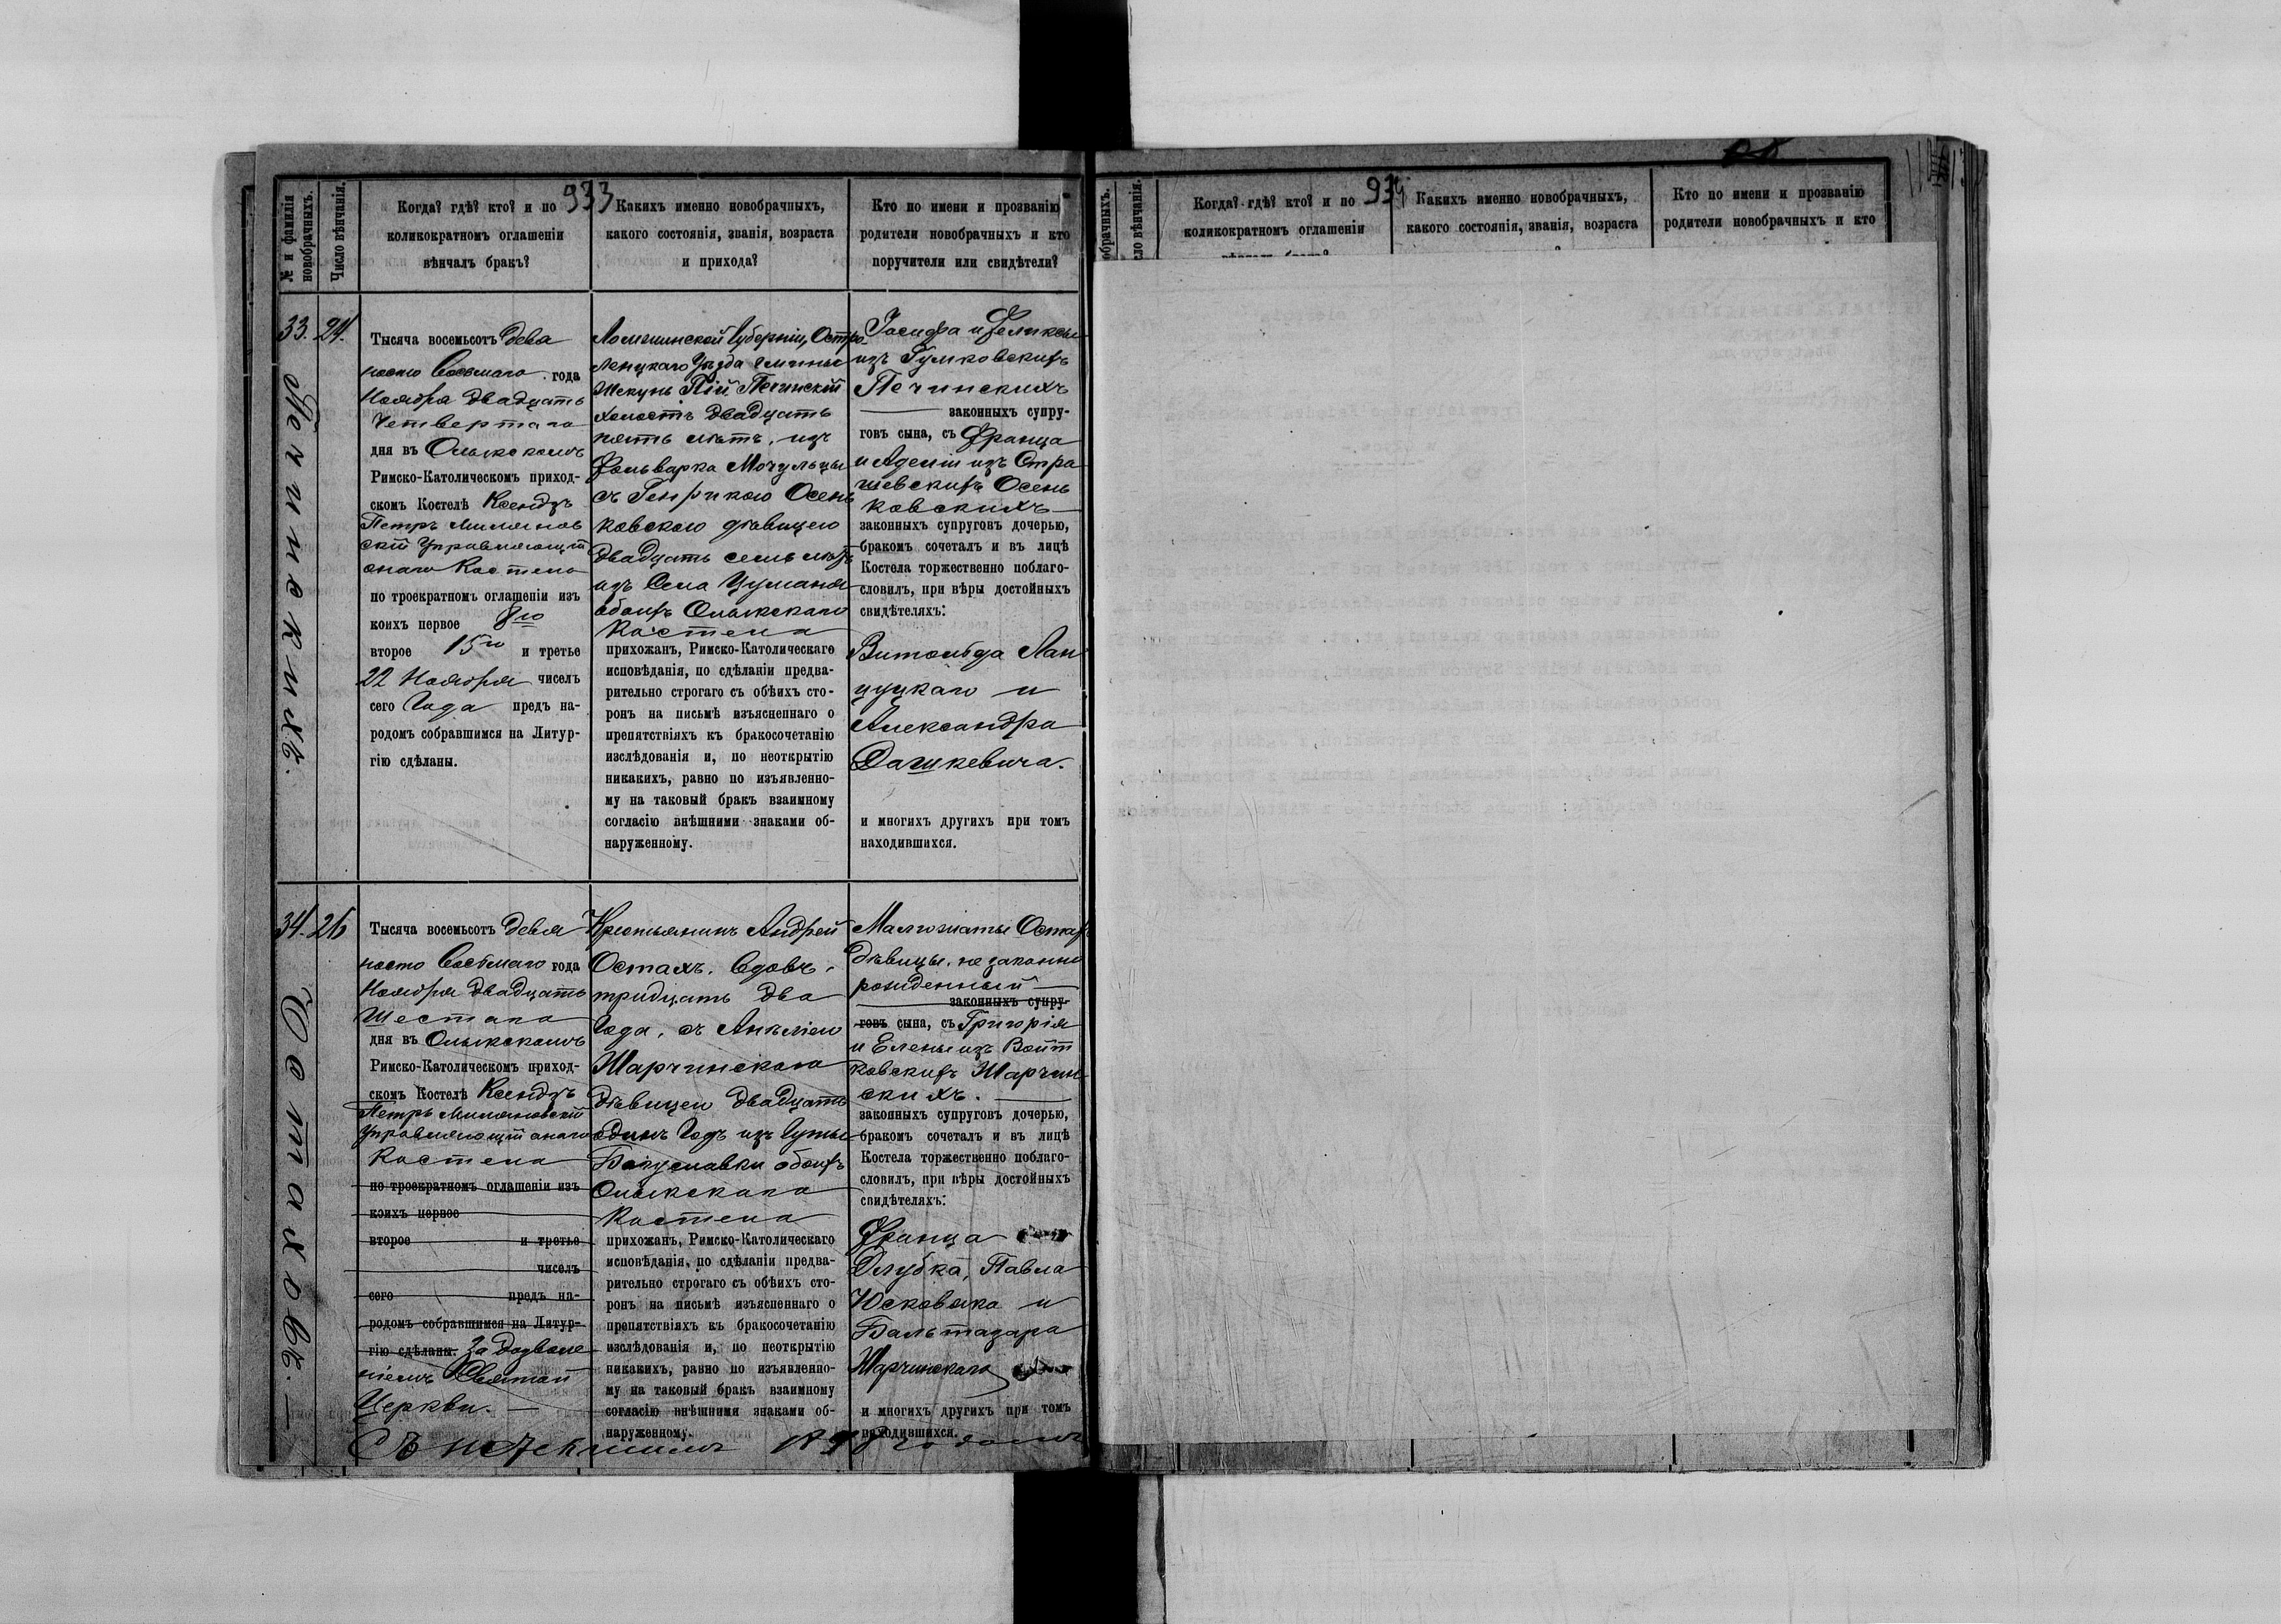 933
№ и фамилія
новобрачныхъ.
Число вѣнчанія.
Когда? гдѣ? кто? и по
коликократномъ оглашеніи
вѣнчалъ бракъ?
Какихъ именно новобрачныхъ,
какого состоянія, званія, возраста
и прихода?
Кто по имени и прозванію
родители новобрачныхъ и кто
поручители или свидѣтели?
33.
24.
Печинскихъ.
Тысяча восемьсотъ девя
носто Восьмаго года
Ноября двадцать
Четвертаго
дня въ Олыкскомъ
Римско-Католическомъ приход-
скомъ Костелѣ Ксендзъ
Петръ Милянов
скій Управляющій
онаго Костела
по троекратномъ оглашеніи изъ
коихъ первое 8го
второе 15го и третье
22 Ноября чиселъ
сего Года предъ на-
родомъ собравшимся на Литур-
гію сдѣланы.
Ломжинской Губерніи, Остро
ленцкаго Уѣзда гмины
Жекунь Пій Печинскій
холостъ двадцать
пять лѣтъ, изъ
Фольварка Мочульцы
съ Генрикою Осень
ковскою дѣвицею
двадцать семь лѣтъ
изъ Села Цуманя
обоихъ Олыкскаго
Костела
прихожанъ, Римско-Католическаго
исповѣданія, по сдѣланіи предва-
рительно строгаго съ обѣихъ сто-
ронъ на письмѣ изъясненнаго о
препятствіяхъ къ бракосочетанію
изслѣдованія и, по неоткрытію
никакихъ, равно по изъявленно-
му на таковый бракъ взаимному
согласію внѣшними знаками об-
наруженному.
Іосифа и Феликсы
изъ Гумковскихъ
Печинскихъ
законныхъ супру-
говъ сына, съ Франца
и Аделіи изъ Стра
шевскихъ Осень
ковскихъ
законныхъ супруговъ дочерью,
бракомъ сочеталъ и въ лицѣ
Костела торжественно поблаго-
словилъ, при вѣры достойныхъ
свидѣтеляхъ:
Витольда Лан
цуцкаго и
Александра
Дашкевича.
и многихъ другихъ при томъ
находившихся.
34.
26
Остаховъ.
Тысяча восемьсотъ девя
носто Восьмаго года
Ноября двадцать
Шестаго
дня въ Олыкскомъ
Римско-Католическомъ приход-
скомъ Костелѣ Ксендзъ
Петръ Миляновскій
Управляющій онаго
Костела
по троекратномъ оглашеніи изъ
коихъ первое
второе и третье
чиселъ
сего предъ на-
родомъ собравшимся на Литур-
гію сдѣланы. За дозволе
ніемъ Святой
Церкви.
Крестьянинъ Андрей
Остахъ. Вдовъ,
тридцать два
Года, съ Анѣліею
Шарчинскою
дѣвицею двадцать
одинъ Годъ изъ Гуты
Богуславки обоихъ
Олыкскаго
Костела
прихожанъ, Римско-Католическаго
исповѣданія, по сдѣланіи предва-
рительно строгаго съ обѣихъ сто-
ронъ на письмѣ изъясненнаго о
препятствіяхъ къ бракосочетанію
изслѣдованія и, по неоткрытію
никакихъ, равно по изъявленно-
му на таковый бракъ взаимному
согласію внѣшними знаками об-
наруженному.
Малгожаты Остахъ
дѣвицы, не законно
рожденный
законныхъ супру-
говъ сына, съ Григорія
и Елены изъ Войт
ковскихъ Шарчин
скихъ.
законныхъ супруговъ дочерью,
бракомъ сочеталъ и въ лицѣ
Костела торжественно поблаго-
словилъ, при вѣры достойныхъ
свидѣтеляхъ:
Франца
Длубка, Павла
Юсковяка и
Бальтазара
Шарчинскаго
и многихъ другихъ при томъ
находившихся.
1898 годомъ
934
Когда? гдѣ? кто? и по
коликократномъ оглашеніи
Какихъ именно новобрачныхъ,
какого состоянія, званія, возраста
Кто по имени и прозванію
родители новобрачныхъ и кто